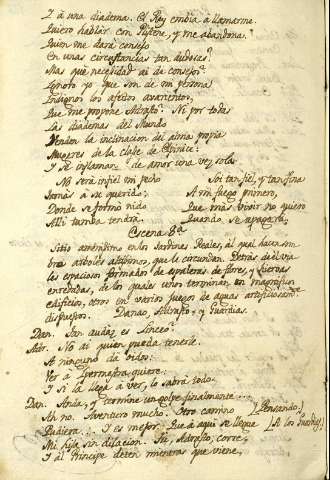 I à una diadema. El Rey embia à llamarme.
Quiero hablar con Plistene, y me abandona.
Quien me darà consejo
En unas circustancias tan dudosas?
Mas que necesidad ai de consejo?
Ignoro yo que son de mi persona
Indignos los afectos avarientos,
Que me propone Adrasto? Ni por todas
Las diademas del Mundo
Venden la inclinacion del alma propia
Mugeres de la clase de Elpinice:
I se inflaman de amor una vez sola.
No será infiel mi pecho
Jamàs à su querido:
Donde se formò nido
Alli tumba tendrà.
Soi tan fiel, y tan fina
A mi fuego primero,
Que más vivir no quiero
Quando se apagarà.
Escena 8ª
Sitio amenisimo en los Jardines Reales, al qual hacen sombra
arboles altisimos, que le circundan. Detràs
espaciosos formados de espaleras de flores, y
enredadas, de los quales unos terminan en magnificos
edificios, otros en varios juegos de aguas artificiosamte.
dispuestos. Danao, Adrasto, y Guardias.
Dan. Tan audaz es Linceo?
Adr. No ai quien pueda tenerle.
A ninguno dà oidos.
Ver à Ipermestra quiere.
I si la llega à ver, lo sabrà todo.
Dan. Anda, y termine un golpe finalmente...
Ah no. Aventuro mucho. Otro camino (Pensando.)
Pudiera... I es mejor. Que à aqui se llegue (A los Guardias)
Mi hija sin dilacion. Tu, Adrasto, corre,
I al Principe deten mientras que viene,